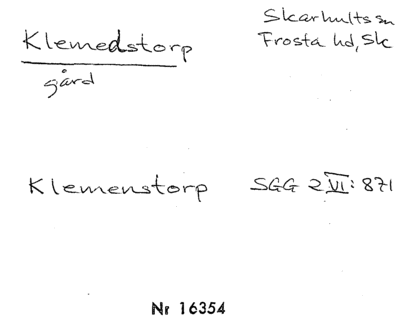 Klemedstorp
gård
Skarhults sn
Frosta hd, Sk
Klemenstorp SGG 2 VI: 871
Nr 16354